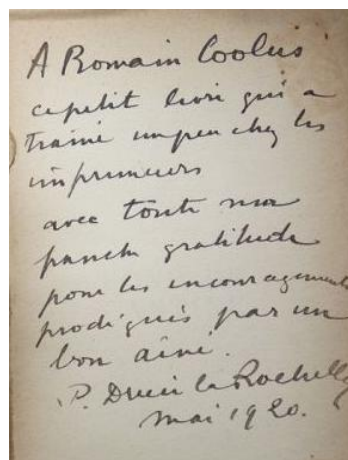 A Romain Coolus
ce petit livre qui a
traîné un peu chez les
imprimeurs
avec toute ma
franche gratitude
pour les encouragements
prodigués par un
bon aîné.
P. Drieu la Rochelle
mai 1920.